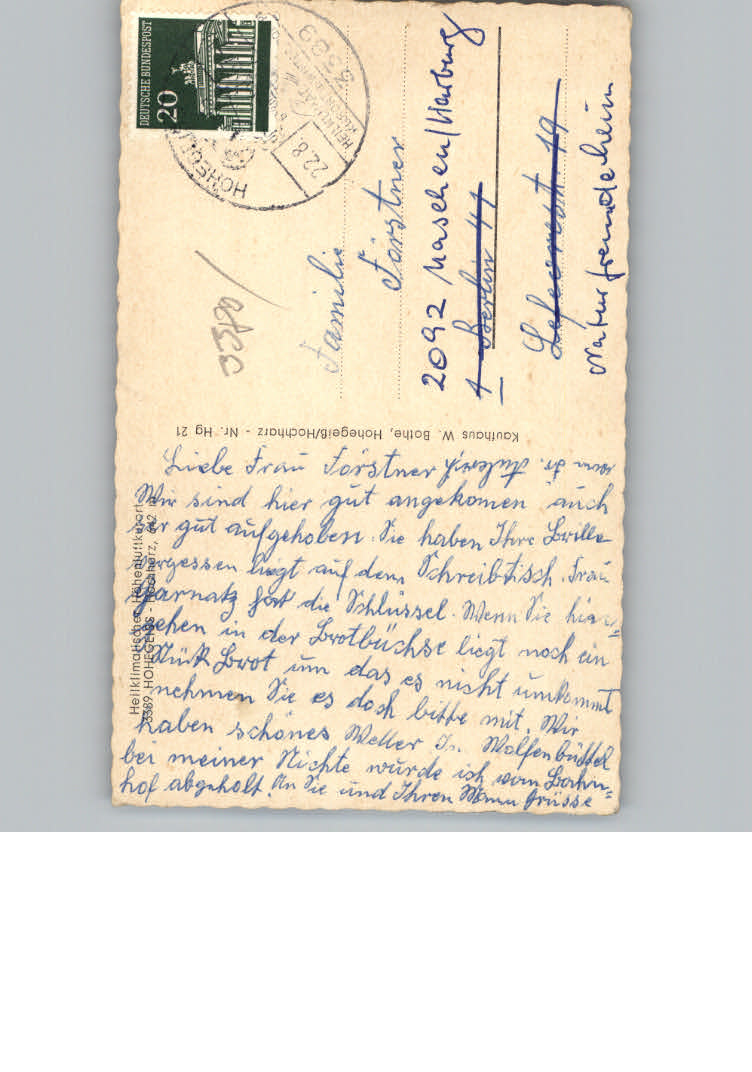 DEUTSCHE BUNDESPOST
20
3389
HEILKLIMAT.
22.8.
3380
Familie
Förstner
2092 Maschen/Harburg
1 Berlin 41
19
Naturfreundeheim
Kaufhaus W. Bothe, Hohegeiß/Hochharz - Nr. Hg 21
Heilklimatischer Höhenluftkurort
3389 HOHEGEISS Hochharz, 642 m
Liebe Frau Förstner
Wir sind hier gut angekomen auch
ser gut aufgehoben. Sie haben Ihre Brille
vergessen liegt auf dem Schreibtisch. Frau
Garnatz hat die Schlüssel. Wenn Sie hin=
gehen in der Brotbüchse liegt noch ein
Stük Brot um das es nicht umkommt
nehmen Sie es doch bitte mit. Wir
haben schönes Wetter In Wolfenbüttel
bei meiner Nichte wurde ich vom Bahn=
hof abgeholt. An Sie und Ihren Mann Grüsse